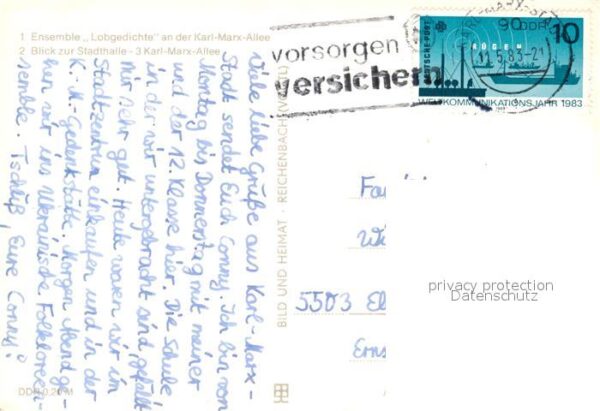 1 Ensemble „Lobgedichte" an der Karl-Marx-Allee
2 Blick zur Stadthalle - 3 Karl-Marx-Allee
vorsorgen
versichern
90
DDR
10
DEUTSCHE POST
RÜGEN
11.5.83-21
WELTKOMMUNIKATIONSJAHR 1983
Viele liebe Grüße aus Karl-Marx-
Stadt sendet Euch Conny. Ich bin von
Montag bis Donnerstag mit meiner
und der 12. Klasse hier. Die Schule
in der wir untergebracht sind, gefällt
mir sehr gut. Heute waren wir im
Stadtzentrum einkaufen und in der
K.-M.-Gedenkstätte. Morgen Abend ge-
hen wir ins Ukrainische Folkloreen-
semble. Tschüß, Eure Conny!
BILD UND HEIMAT · REICHENBACH (VOGTL)
5503 El
Erns
privacy protection
Datenschutz